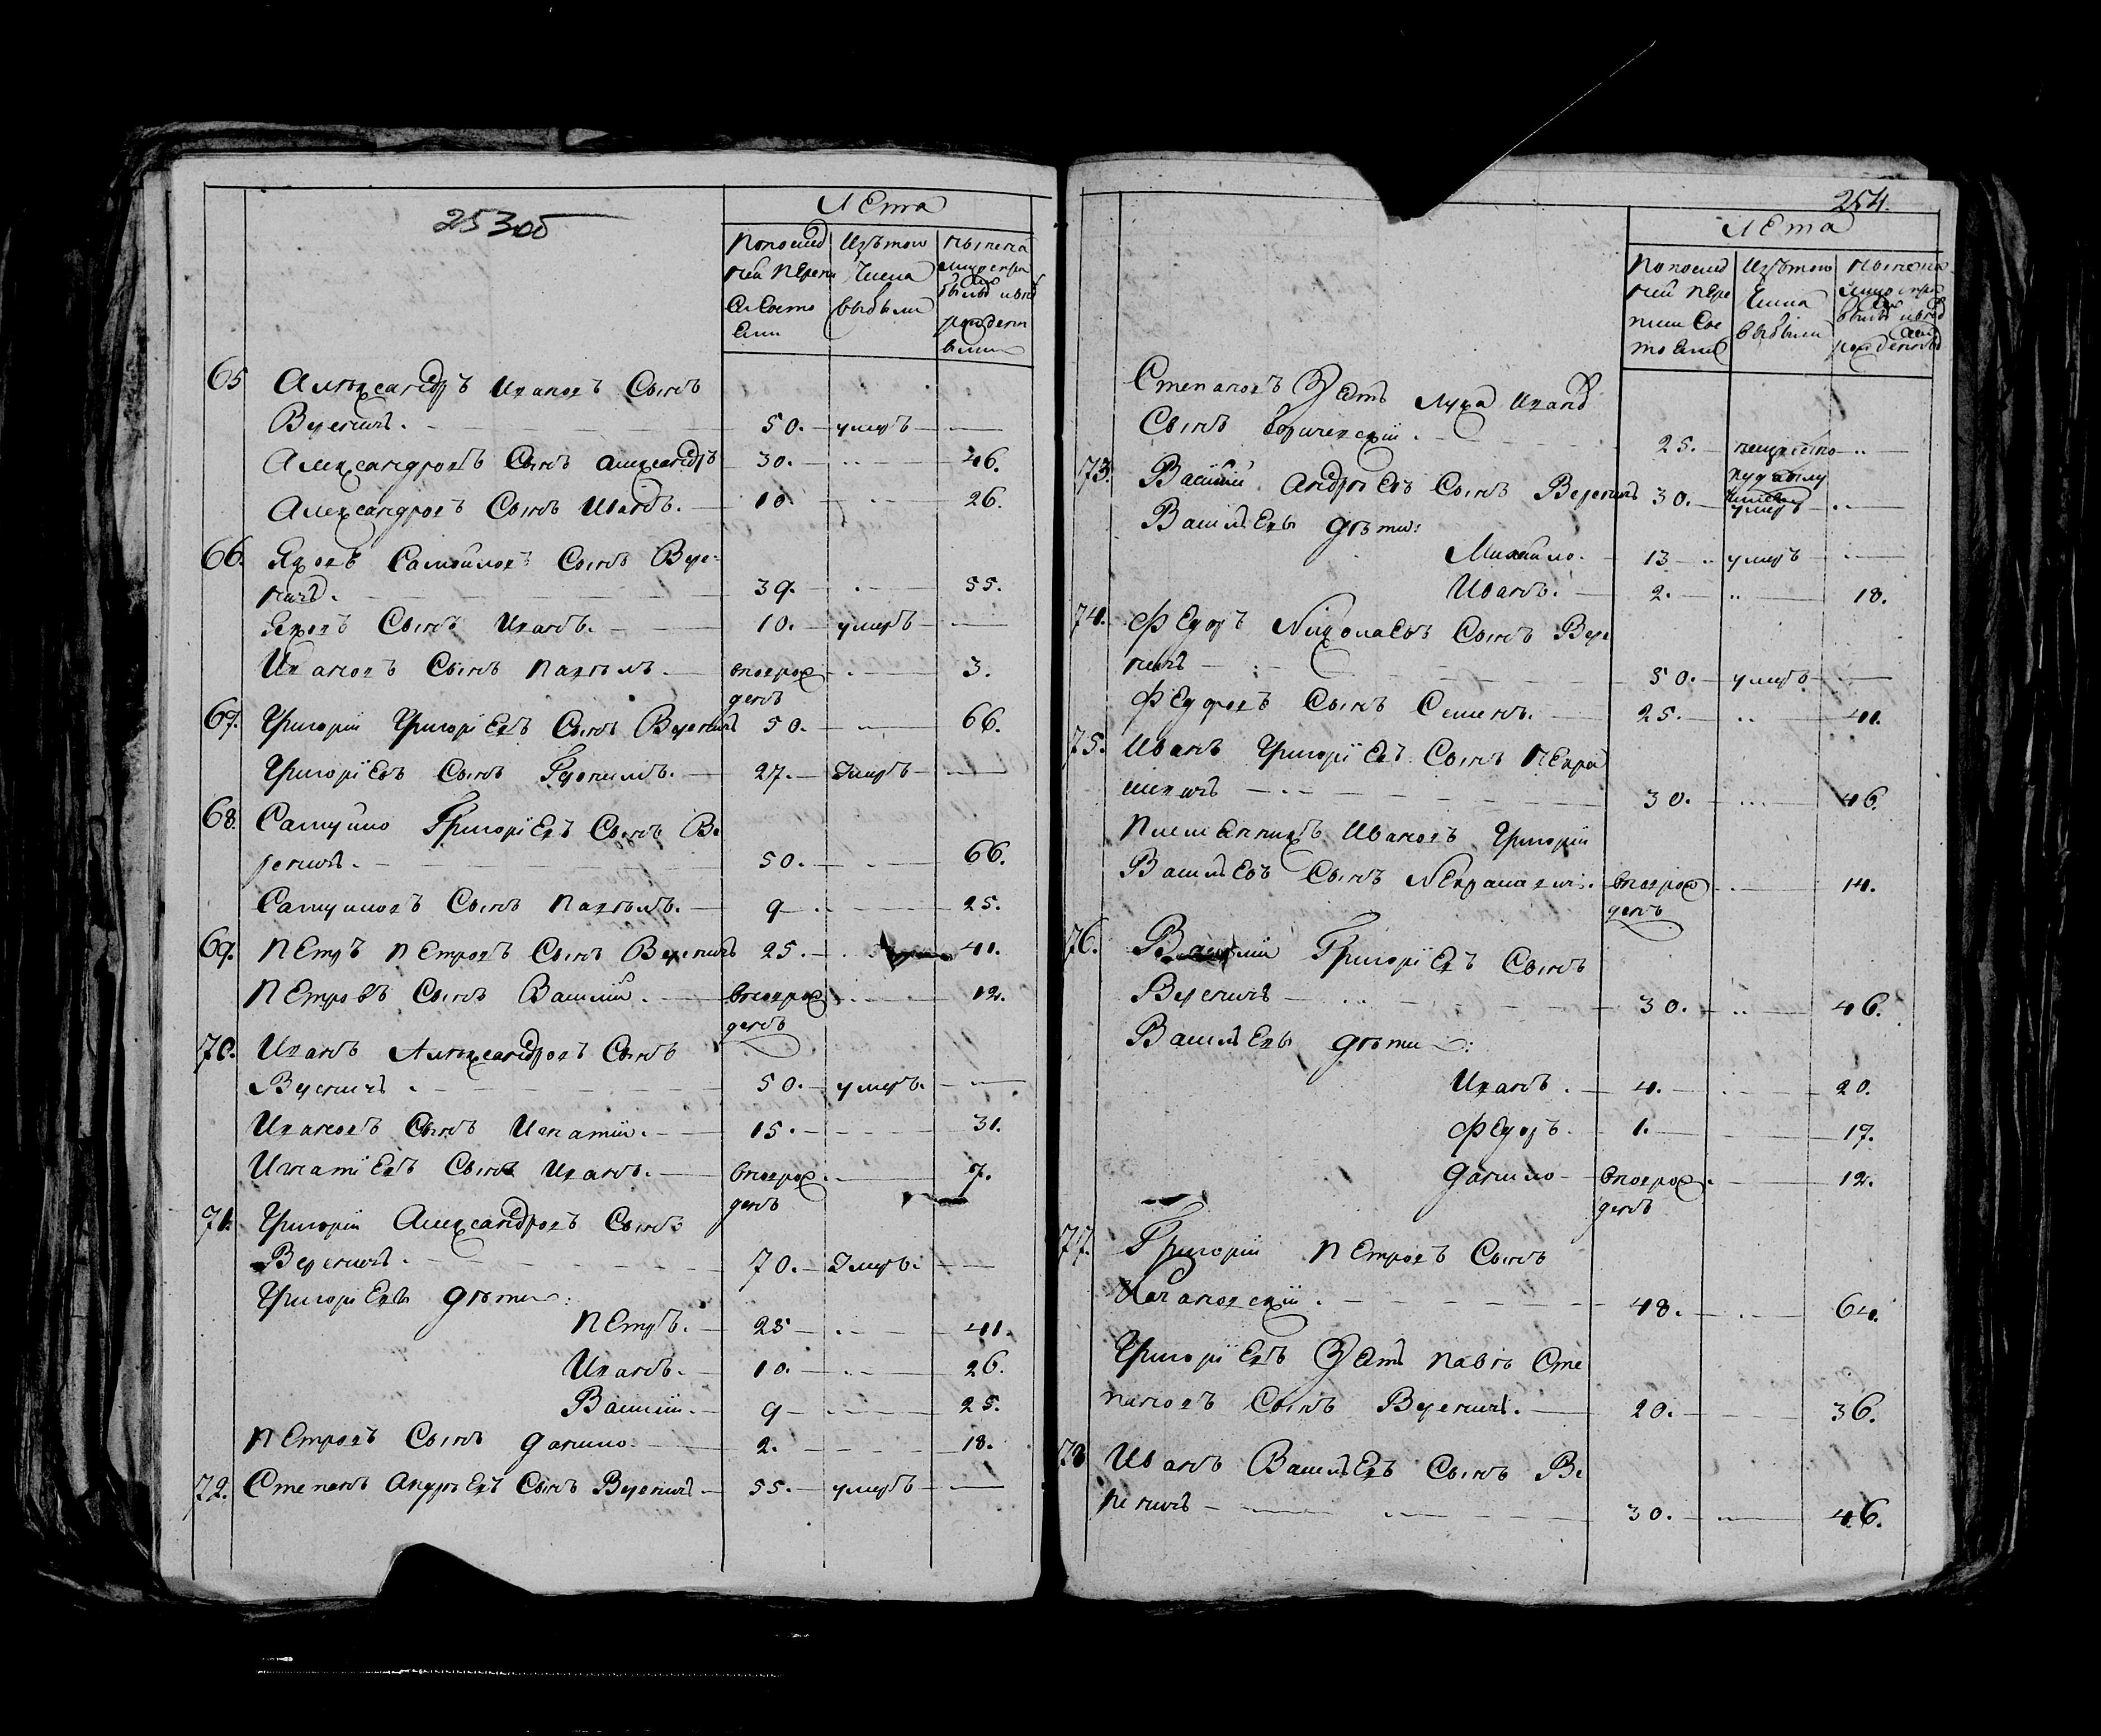 253об
Лета
По послед
ней переп
си состо
яли
Изътого
числа
выбыли
Ныне на
лицо скра
быв
рожденн
65 Александръ Ивановъ Сынъ
Веренич.
50. умеръ
Александровъ Сынъ Александръ 30. 46.
Александровъ Сынъ Иванъ. 10. 26.
66. Яковъ Самойловъ Сынъ Вере-
нич. 39. 55.
Яковъ Сынъ Иванъ. 10. умеръ
Ивановъ Сынъ Павелъ. вноврож 3.
денъ
67. Григорий Григорiевъ Сынъ Веренич 50. 66.
Григорiевъ Сынъ 27. Умеръ
68. Самуйло Григорiевъ Сынъ Ве
ренич. 50. 66.
Самуиловъ Сынъ Павелъ. 9 25.
69. Петръ Петровъ Сынъ Веренич 25. 41.
Петровъ Сынъ Василий. вноврож 12.
денъ
70. Иванъ Александровъ Сынъ
Веренич. 50. умеръ.
Ивановъ Сынъ Игнатий. 15. 31.
Игнатiевъ Сынъ Иванъ. вноврож. 7.
денъ
71. Григорий Александровъ Сынъ
Веренич. 70. Умеръ.
Григорiевы дѣти:
Петръ. 25 41.
Иванъ. 10. 26.
Василий. 9 25.
Петровъ Сынъ Данило. 2. 18.
72. Степанъ Андрѣевъ Сынъ Веренич 55. умеръ
254.
Лета
По послед
ней пере
писи Сос
тояли
Изътого
числа
выбыли
Ныне на
лицо
рожденны
Степановъ Зять Лука Иванов
Сынъ 25. неизвестно
73. Василий Андрѣевъ Сынъ Веренич 30. умеръ
Васильевы дѣти:
Михайло. 13 умеръ
Иванъ. 2. 18.
74. Федоръ Николаевъ Сынъ Вере
нич 50. умеръ
Федоровъ Сынъ Семенъ. 25. 41.
75. Иванъ Григорiевъ Сынъ Некра
шевич 30. 46.
Племенникъ Ивановъ Григорий
Васильевъ Сынъ Некрашевич. вноврож 14.
денъ
76. Василий Григорiевъ Сынъ
Веренич 30. 46.
Васильевы дѣти:
Иванъ. 4. 20.
Федоръ. 1. 17.
Данило вноврож. 12.
денъ
77. Григорий Петровъ Сынъ
48. 64.
Григорiевъ Зять Павел Сте
пановъ Сынъ Веренич. 20. 36.
78 Иванъ Васильевъ Сынъ Ве
ренич 30. 46.